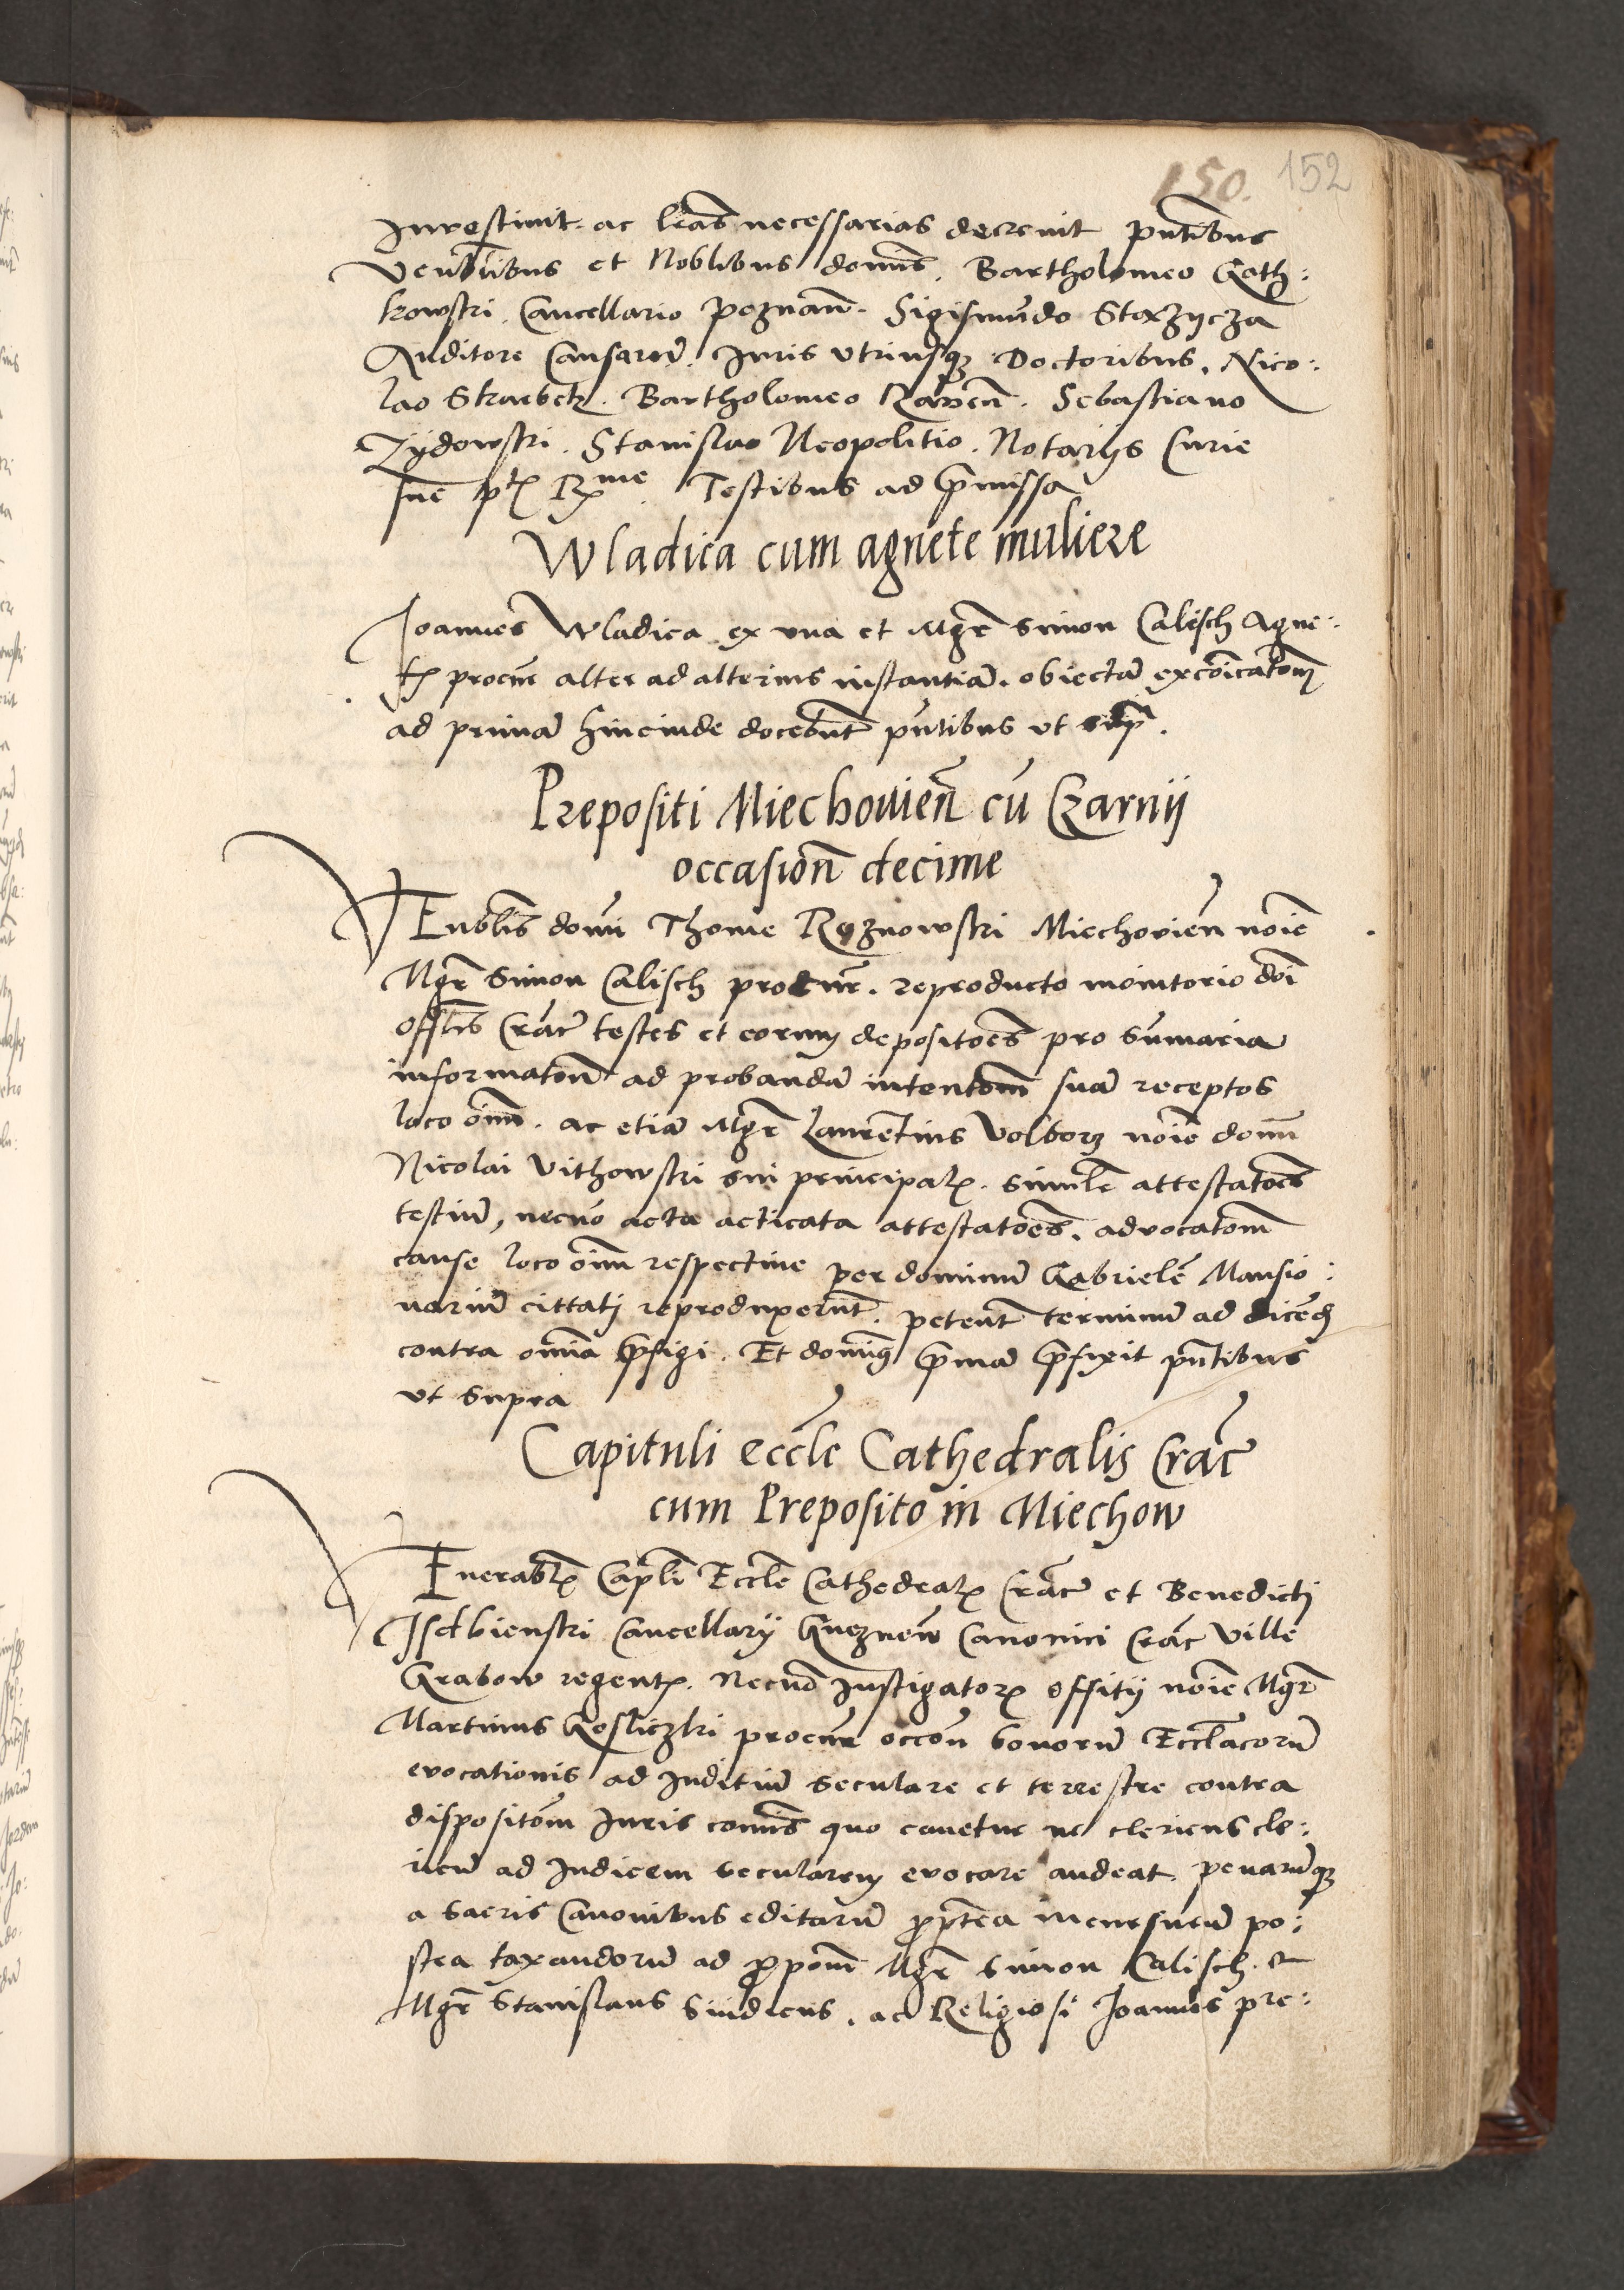 150. 152
Inuestiuit. ac lr̃as necessarias decreuit pñtibus
Venblibus et Noblibus domīs. Bartholomeo Gath:
kowski. Cancellario Poznañ. Sigismūdo Starzycza
Auditore Causarũ. Iuris vtriusqz Doctoribus. Nico:
lao Skarbek. Bartholomeo Sebastiano
Zydowski. Stanislao Neopolitio. Notarijs Curie
sue Rme. Testibus ad p̃missa
Wladica cum agnete muliere
Joannes Wladica ex vna et Mgr̃ Simon Calisch Agne:
procur̃ alter ad alterius instantiã. obiectã excõicatiõm
ad primã hincinde docebũt pñtibus vt
Prepositi Miechouien̄ cū Czarnij
occasion̄ decime
VEnblis domi Thome Roznowski Miechouien̄ noīe
Mgr̃ Simon Calisch procur̃. reproducto monitorio doī
offlis Crac̃ testes et eorum depositões pro sũmaria
informatõne ad probandã intentõm suã receptos
loco oīm. ac etiã Mgr̃ Laurẽtius Volborz noīe domī
Nicolai Vithowski sui principal. simile attestatões
testiũ, necnõ acta acticata attestatões. aduocatõm
cause loco oīm respectiue per dominũ Gabrielẽ Mansio:
nariũ cittati reproduxerũt. petent terminũ ad dicẽd
contra omīa p̃figi. Et domīus p̃mã p̃fixit pñtibus
vt supra
Capituli eccle Cathedralis Crac̃
cum Preposito in Miechow
VEnerabl Caplī Eccle Cathedral Crac̃ et Benedicti
Isdbienski Cancellarij Gneznen̄ Canonici Crac̃ Ville
Grabow regent. Necnõ Instigator offitij noīe Mgr̃
Martinus Gosliczki procur̃ occõn bonorũ Ecclacorũ
euocationis ad Iuditiũ seculare et terrestre contra
dispositõm Iuris comīs quo cauetur ne clericus cle:
ricũ ad Iudicem secularem euocare audeat. penarũqz
a sacris Canonibus editarũ p̃ptea incursurũ po:
stea taxandorũ ad p̃ponẽ Mgr̃ Simon Calisch. et
Mgr̃ Stanislaus Sindicus. ac Religiosi Joannes pre: